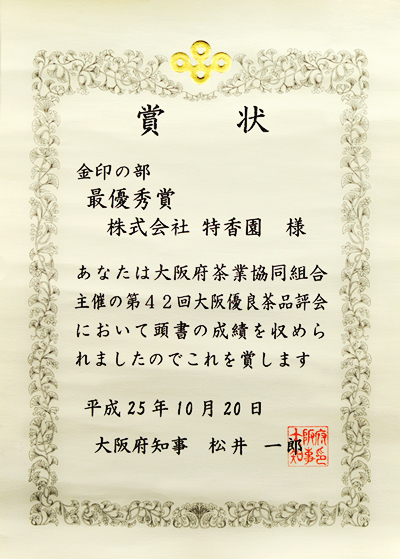 賞状
金印の部
最優秀賞
株式会社 特香園 様
あなたは大阪府茶業協同組合
主催の第42回大阪優良茶品評会
において頭書の成績を収めら
れましたのでこれを賞します
平成25年10月20日
大阪府知事 松井 一郎
大阪府
知事印